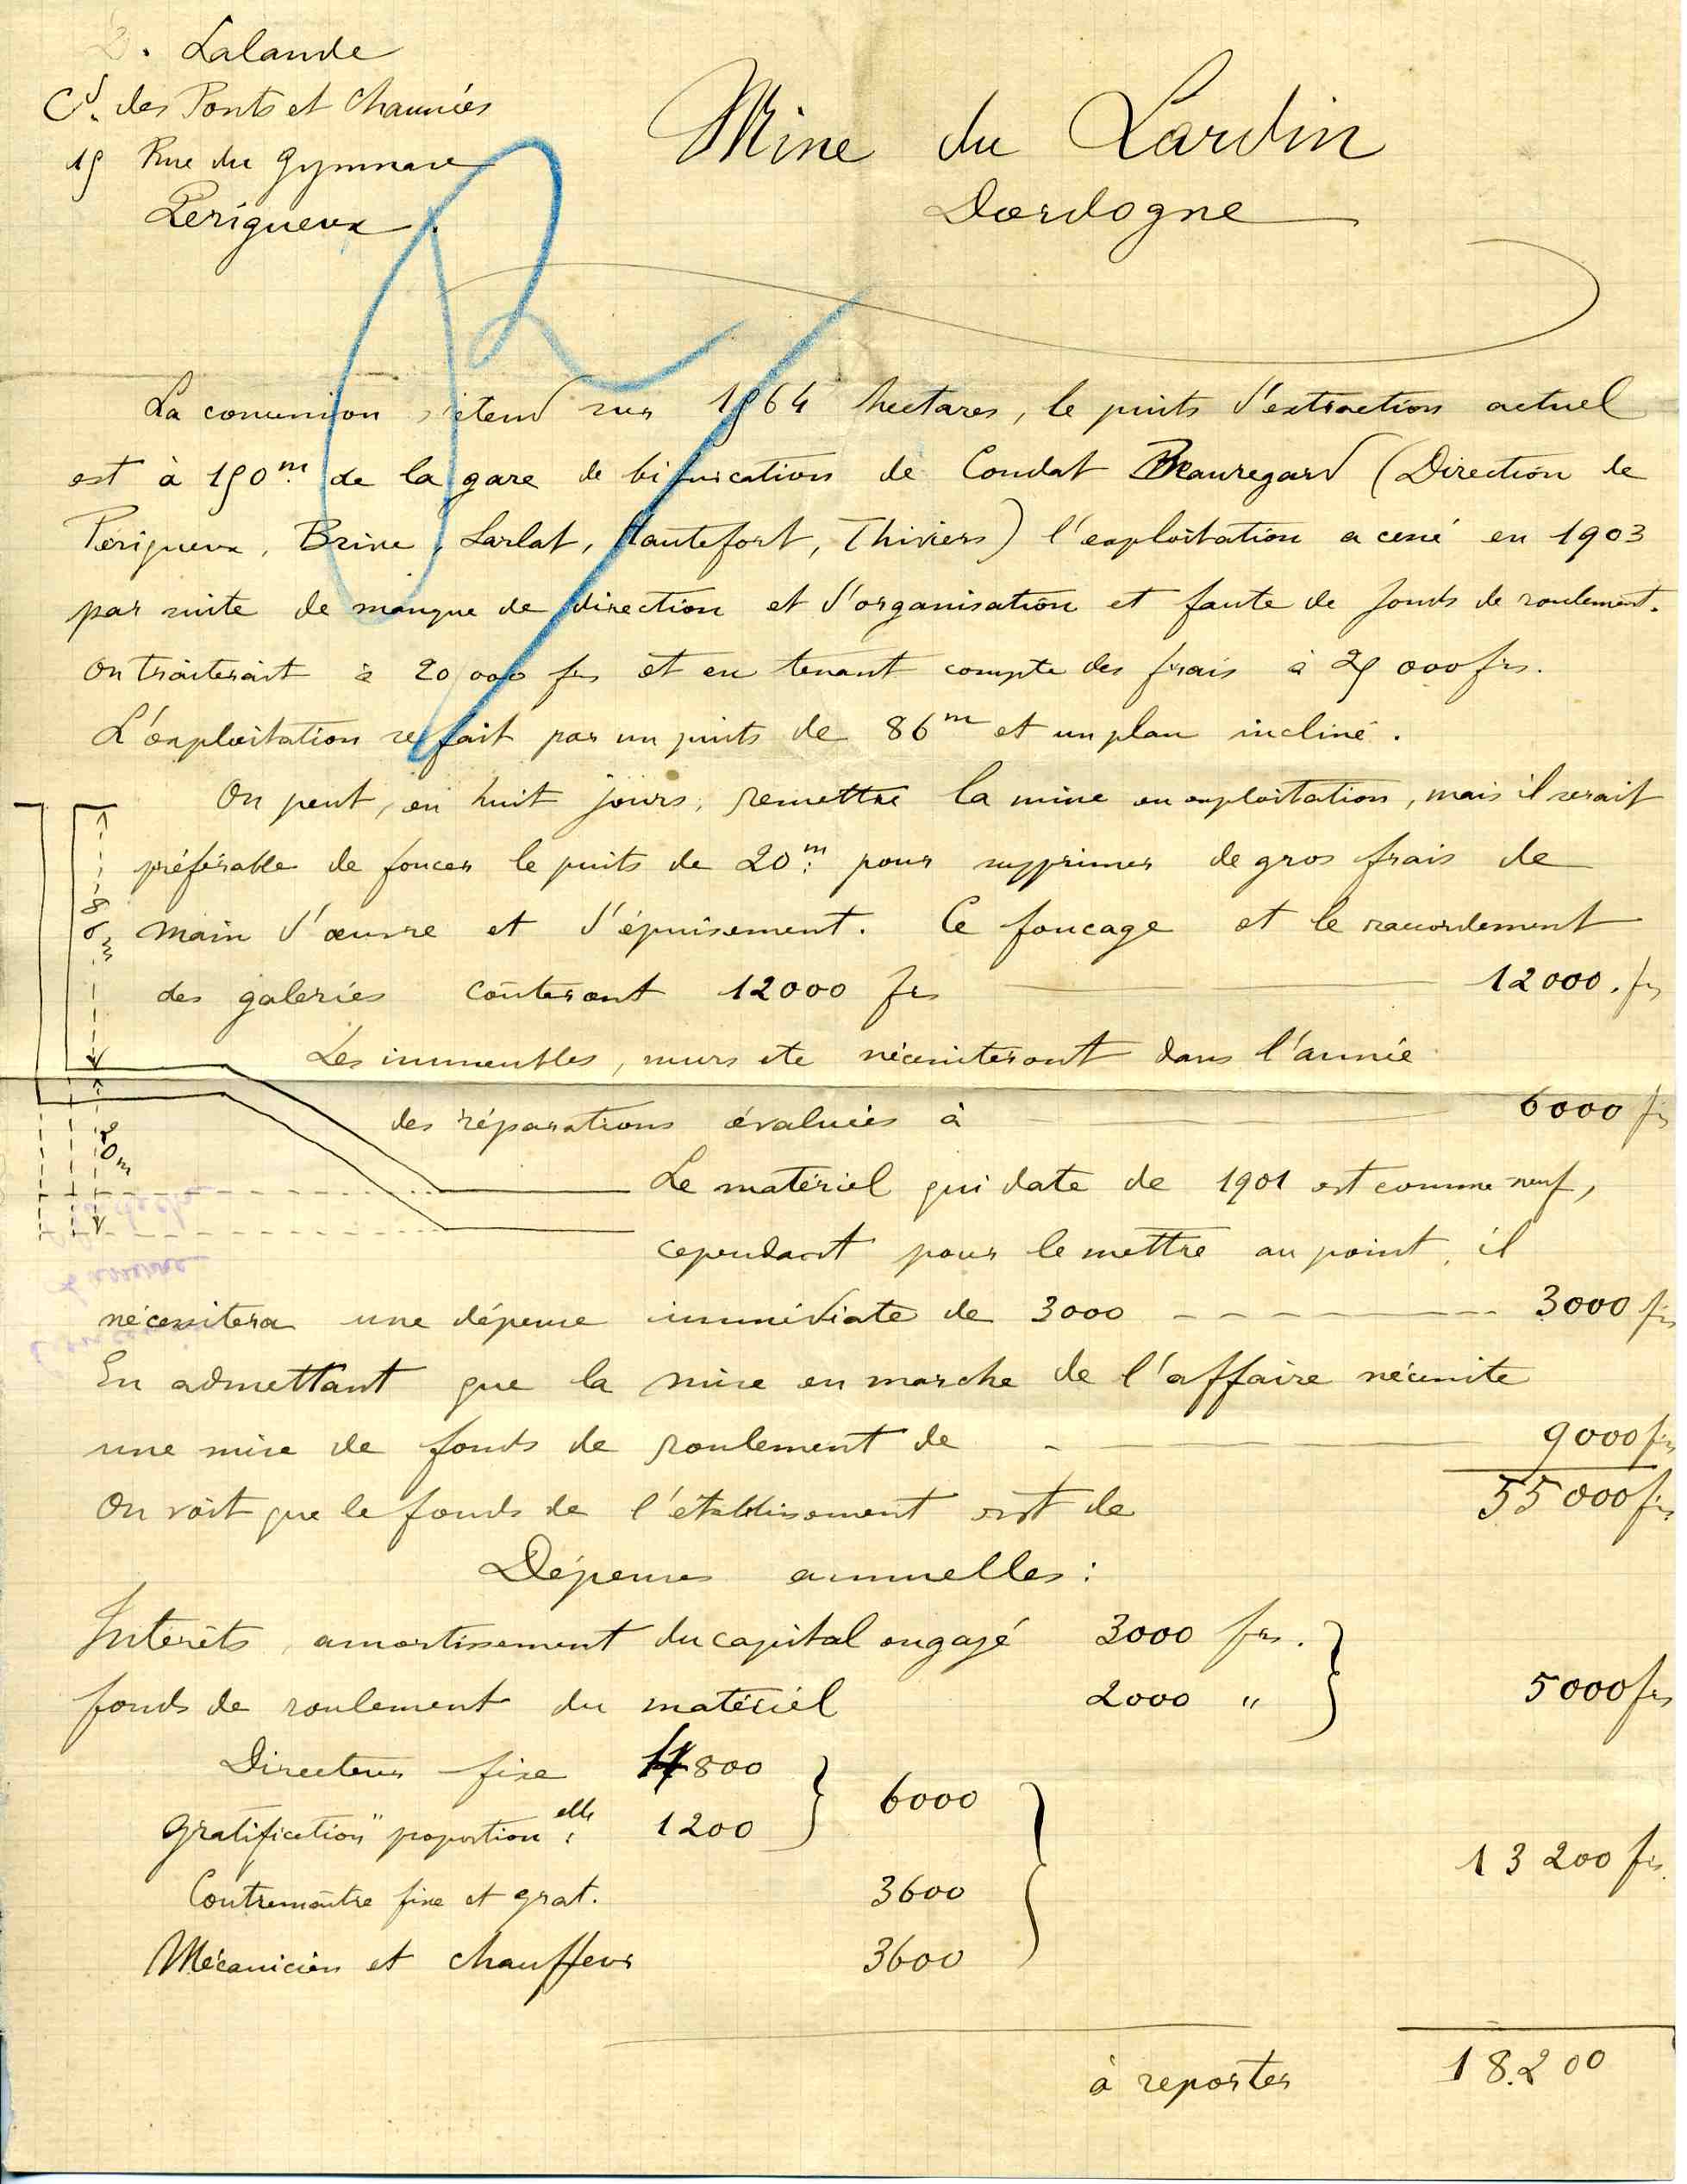 . Lalande
Cr. des Ponts et Chaussées
15 Rue du Gymnase
Périgueux.
Mine du Lardin
Dordogne
La concession s'étend sur 1564 hectares, le puits d'extraction actuel
est à 150m. de la gare de bifurcation de Condat Beauregard (Direction de
Périgueux, Brive, Sarlat, Hautefort, Thiviers) l'exploitation a cessé en 1903
par suite de manque de direction et d'organisation et faute de fonds de roulement.
On traiterait à 20 000 frs et en tenant compte des frais à 25 000 frs.
L'exploitation se fait par un puits de 86m et un plan incliné.
On peut, en huit jours, remettre la mine en exploitation, mais il serait
préférable de foncer le puits de 20m. pour supprimer de gros frais de
main d'œuvre et d'épuisement. Ce fonçage et le raccordement
des galeries coûteront 12000 frs 12000. frs
Les immeubles, murs etc nécessiteront dans l'année
des réparations évaluées à 6000 frs
Le matériel qui date de 1901 est comme neuf,
cependant pour le mettre au point, il
nécessitera une dépense immédiate de 3000 3000 frs
En admettant que la mise en marche de l'affaire nécessite
une mise de fonds de roulement de 9000 frs
On voit que le fonds de l'établissement est de 55 000 frs
Dépenses annuelles :
Intérêts, amortissement du capital engagé 3000 frs.
fonds de roulement du matériel 2000 " 5000 frs
Directeur fixe 4800
6000
Gratification" proportionelle: 1200
13 200 frs.
Contremaître fixe et grat. 3600
Mécanicien et chauffeur 3600
à reporter 18.200
86m
20m